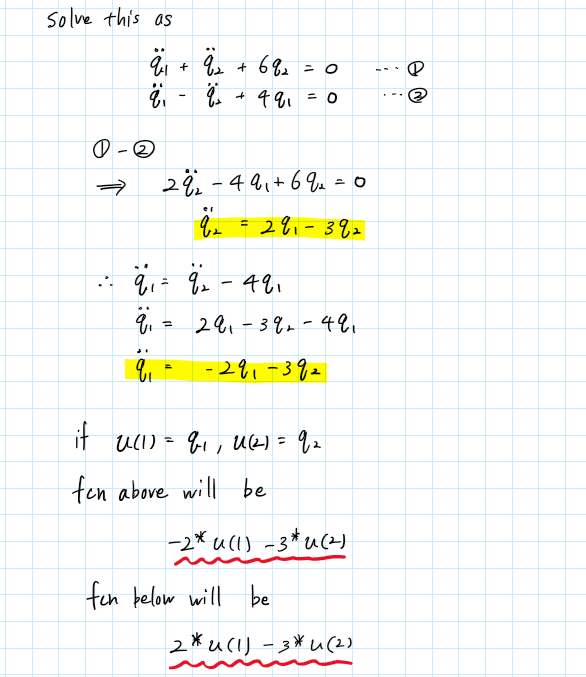 Solve this as
q̈₁ + q̈₂ + 6q₂ = 0 ---①
q̈₁ - q̈₂ + 4q₁ = 0 ---②
① - ②
⇒ 2q̈₂ - 4q₁ + 6q₂ = 0
q̈₂ = 2q₁ - 3q₂
∴ q̈₁ = q̈₂ - 4q₁
q̈₁ = 2q₁ - 3q₂ - 4q₁
q̈₁ = -2q₁ - 3q₂
if u(1) = q₁, u(2) = q₂
fcn above will be
-2*u(1) -3*u(2)
fcn below will be
2*u(1) - 3*u(2)